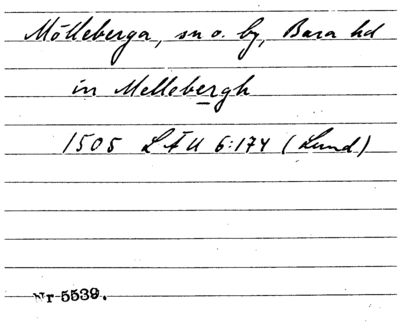 Mölleberga, sn o. by, Bara hd
in Mellebergh
1505 LÄU 6:174 (Lund)
Nr 5539.